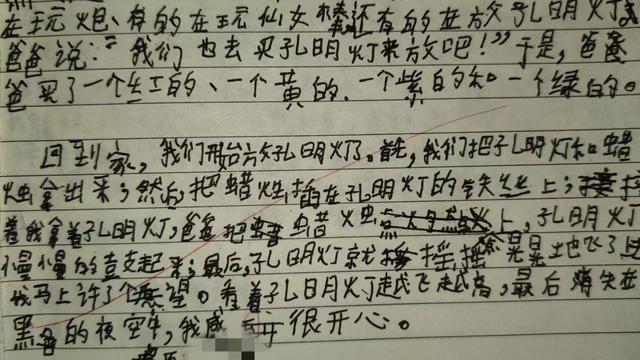 在玩炮、有的在玩仙女棒还有的在放孔明灯。
爸爸说："我们也去买孔明灯来放吧！"于是，爸爸
爸买了一个红的、一个黄的、一个紫的和一个绿的。
回到家，我们开始方攵孔明灯了。首先，我们把孔明灯和蜡
烛拿出来；然后把蜡烛插在孔明灯的铁丝上；接
着我拿着孔明灯，爸爸把蜡火虫点火上，孔明灯
慢慢的直支起来；最后，孔明灯就摇摇晃晃土也飞了
我马上许了个愿望。看着孔明灯越飞越高，最后消失在
黑色的夜空中，我感很开心。